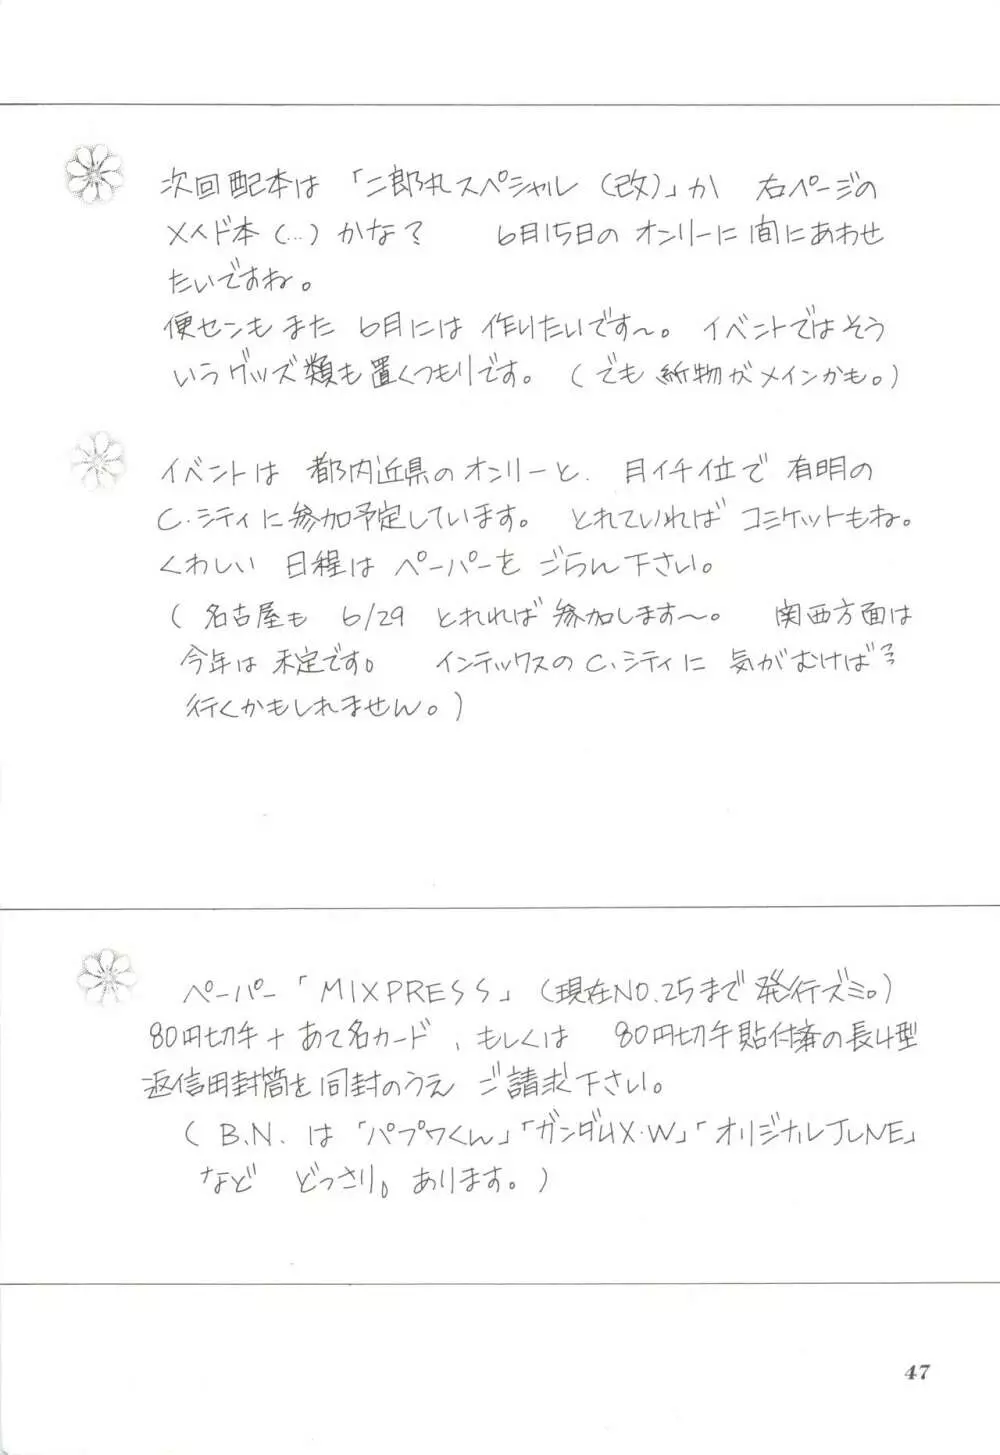 次回配本は「二郎丸スペシャル(改)」か 右ページの
メイド本(…)かな? 6月15日の オンリーに間にあわせ
たいですね。
便センもまた 6月には 作りたいです〜。 イベントではそう
いうグッズ類も置くつもりです。 (でも 紙物がメインかも。)
イベントは 都内近県のオンリーと、月イチ位で 有明の
C.シティに参加予定しています。 とれていれば コミケットもね。
くわしい 日程は ペーパーを ごらん下さい。
(名古屋も 6/29 とれれば参加します〜。 関西方面は
今年は 未定です。 インテックスのC.シティに 気がむけば
行くかもしれません。)
ペーパー「MIXPRESS」(現在NO.25まで 発行ズミ。)
80円切手+あて名カード、もしくは 80円切手貼付済の長4型
返信用封筒を同封のうえ ご請求下さい。
(B.N. は「パプワくん」「ガンダムX・W」「オリジナルJUNE」
など どっさり。あります。)
47